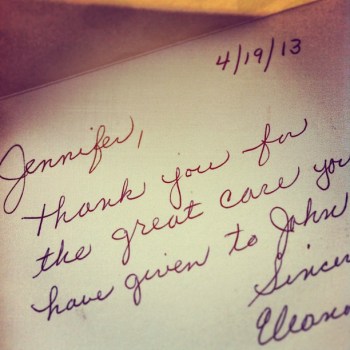 4/19/13
Jennifer,
Thank you for
the great care you
have given to John